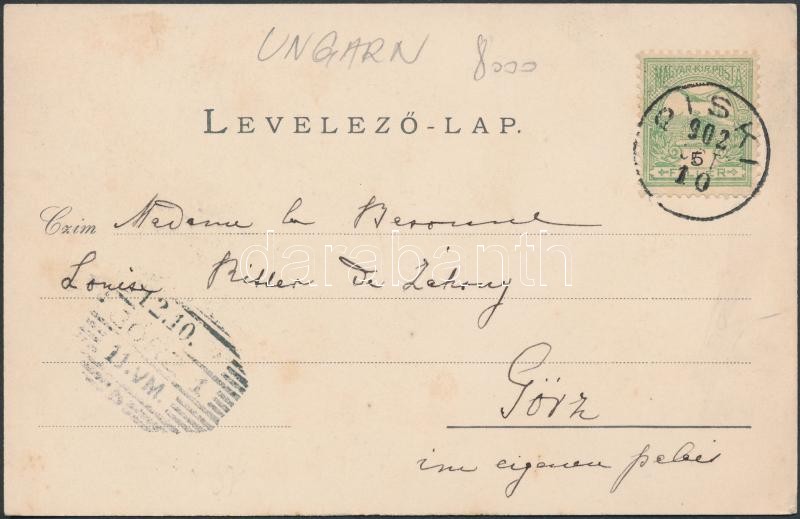 UNGARN 8000
MAGYAR·KIR·POSTA
LEVELEZŐ-LAP.
PISKI
902
OKT
10
5
FILLÉR
Czim Madame la Baronne
Louise Ritter de Záhony
12.10.
GÖRZ 1
11.VM.
Görz
im eigenen palais
darabanth